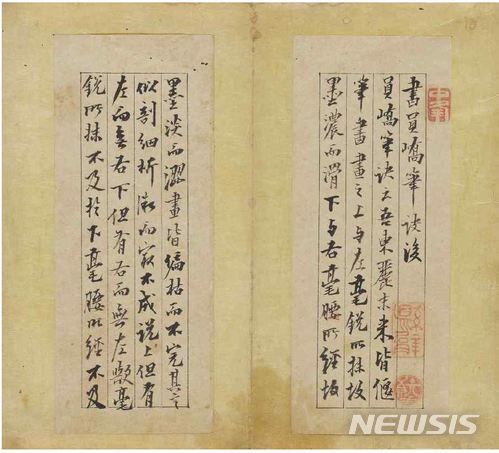 書員嶠筆訣後
員嶠筆訣云吾東麗末來皆偃
筆書畫之上与左毫銳所抹故
墨濃而滑下与右毫腰所經故
墨淡而澀畫皆偏枯而不完其言
似剖細析微而最不成說上但有
左而無右下但有右而無左歟毫
銳所抹不及於下毫腰所經不及
NEWSIS